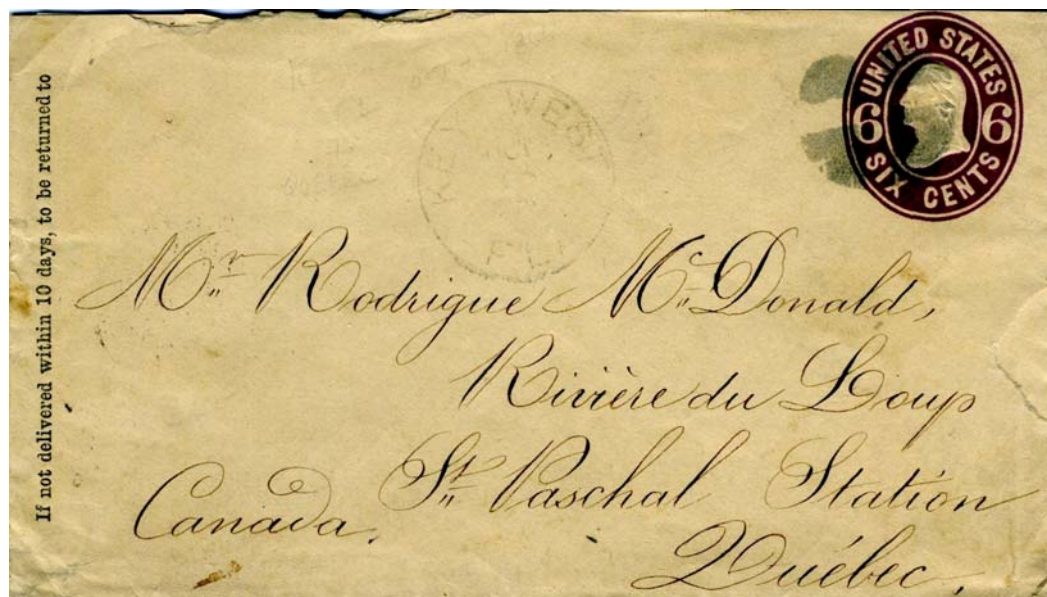 If not delivered within 10 days, to be returned to
UNITED STATES
6 6
SIX CENTS
KEY WEST
FLA
Mr. Rodrigue McDonald,
Rivière du Loup
St. Paschal Station
Canada.
Québec.